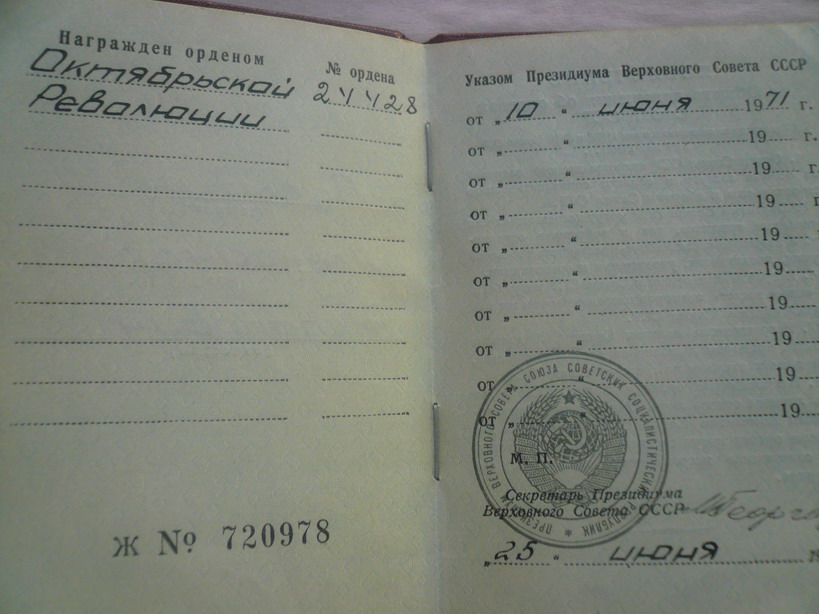 Награжден орденом
№ ордена
Октябрьской
24428
Революции
Ж № 720978
Указом Президиума Верховного Совета СССР
от „10“ июня 1971 г.
от „ “ 19 г.
от „ “ 19 г.
от „ “ 19 г
от „ “ 19
от „ “ 19
от „ “ 19
от „ “ 19
от „ “ 19
от „ “ 19
ПРЕЗИДИУМ ВЕРХОВНОГО СОВЕТА СОЮЗА СОВЕТСКИХ СОЦИАЛИСТИЧЕСКИХ РЕСПУБЛИК
М. П.
Секретарь Президиума
Верховного Совета СССР
„25“ июня